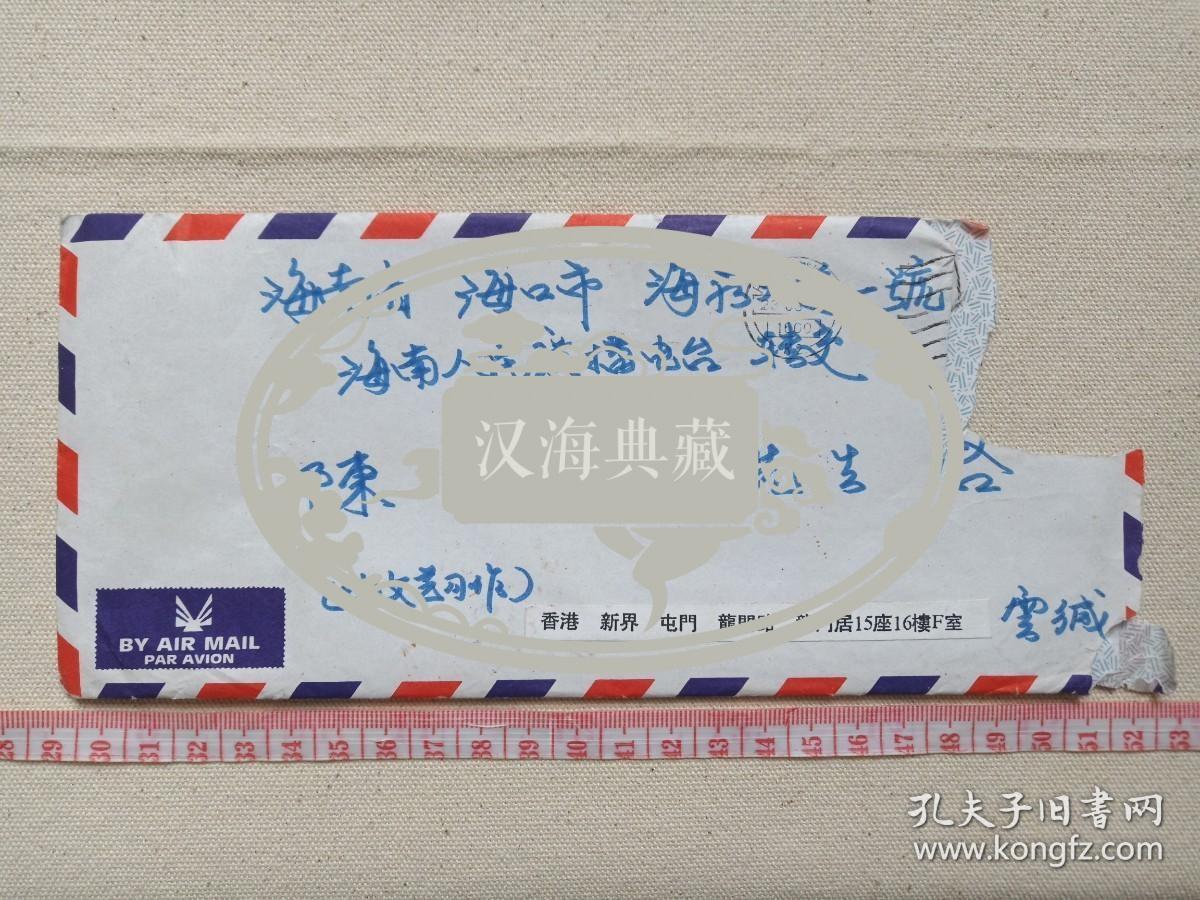 海南省 海口市 海 一號
海南人民廣播电台 轉交
陳 先生 啓
文艺习作)
香港 新界 屯門 龍門路 龍門居15座16樓F室
雲緘
BY AIR MAIL
PAR AVION
汉海典藏
28 29 30 31 32 33 34 35 36 37 38 39 40 41 42 43 44 45 46 47 48 49 50 51 52 53
孔夫子旧书网
www.kongfz.com